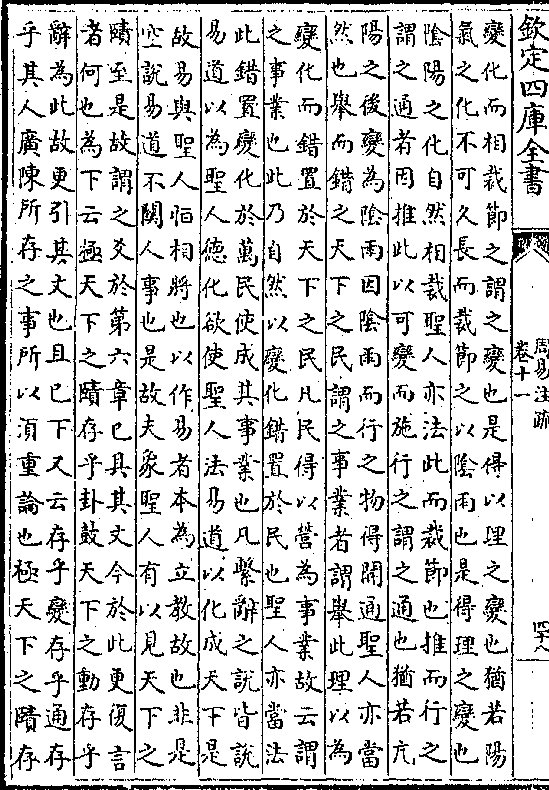 欽定四庫全書
周易注疏
卷十一
四十八
變化而相裁節之謂之變也是得以理之變也猶若陽
氣之化不可久長而裁節之以陰雨也是得理之變也
陰陽之化自然相裁聖人亦法此而裁節也推而行之
謂之通者因推此以可變而施行之謂之通也猶若亢
陽之後變為陰雨因陰雨而行之物得開通聖人亦當
然也舉而錯之天下之民謂之事業者謂舉此理以為
變化而錯置於天下之民凡民得以營為事業故云謂
之事業也此乃自然以變化錯置於民也聖人亦當法
此錯置變化於萬民使成其事業也凡繫辭之說皆說
易道以為聖人德化欲使聖人法易道以化成天下是
故易與聖人恒相將也以作易者本為立教故也非是
空說易道不關人事也是故夫象聖人有以見天下之
賾至是故謂之爻於第六章已具其文今於此更復言
者何也為下云極天下之賾存乎卦鼓天下之動存乎
辭為此故更引其文也且已下又云存乎變存乎通存
乎其人廣陳所存之事所以須重論也極天下之賾存